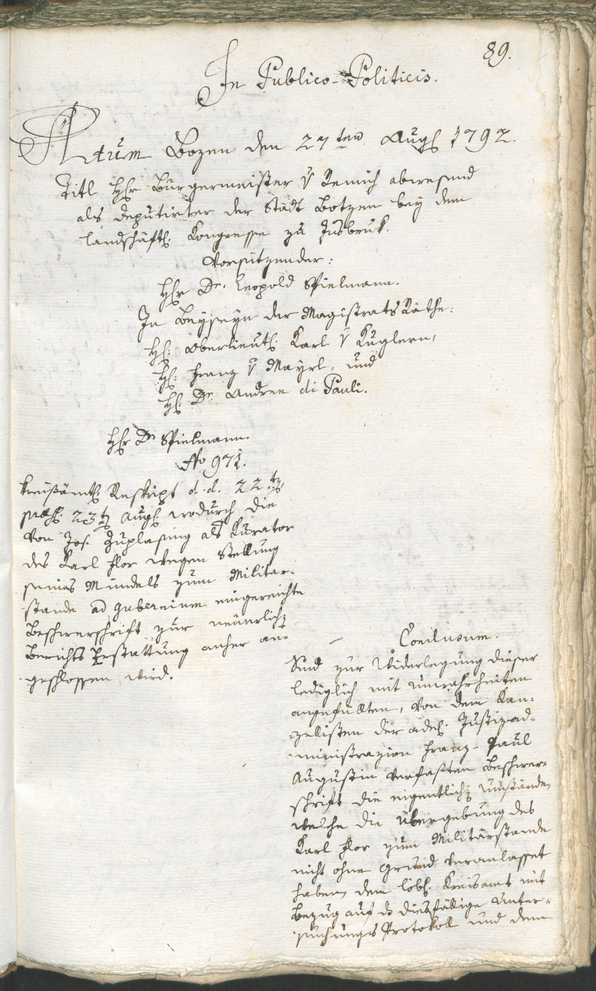 89.
In Publico-Politicis.
Actum Bozen den 27ten Augt 1792.
Titl Hr Bürgermeister v Remich abwesend
als deputirter der Stadt Botzen bey dem
landschäftl. Kongresse zu Insbruk.
Vorsitzender:
Hhr Dr. Leopold Spielmann.
In Beyseyn der Magistrats Räthe:
H: Oberlieut: Karl v Kuglern,
H: Franz v Mayrl, und
H: Dr. Andree di Pauli.
Hhr Dr Spielmann.
No 971.
Kreisämtl Reskript d. d. 22t
23t Augt wodurch die
von Jos. als Kurator
des Karl Flor wegen Stellung
seines Mündels zum Militar-
stande ad gubernium eingereichte
Beschwerschrift zur neuerlich
Berichts Erstattung anher an-
geschlossen wird.
Conclusum.
Sind zur Widerlegung dieser
lediglich mit unwahrheiten
angefüllten, von dem Kan-
zelisten der adel: Justizad-
ministrazion Franz Paul
Augustin verfaßten Beschwer-
schrift die eigentliche umstände,
welche die übergebung des
Karl Flor zum Militärstande
nicht ohne Grund veranlasset
haben, dem löbl. Kreisamt mit
Bezug auf d diesfällige Unter-
suchungs Protokol und dem